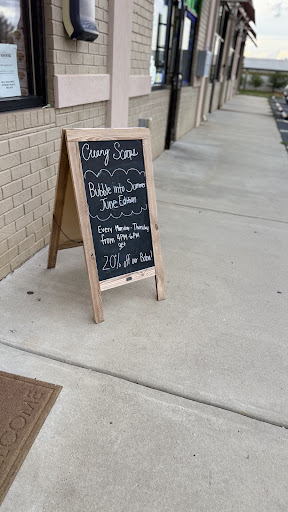 Crazy Scoops
Bubble into Summer
June Edition
Every Monday - Thursday
from 4PM - 6PM
get
20% off our Boba!
WELCOME